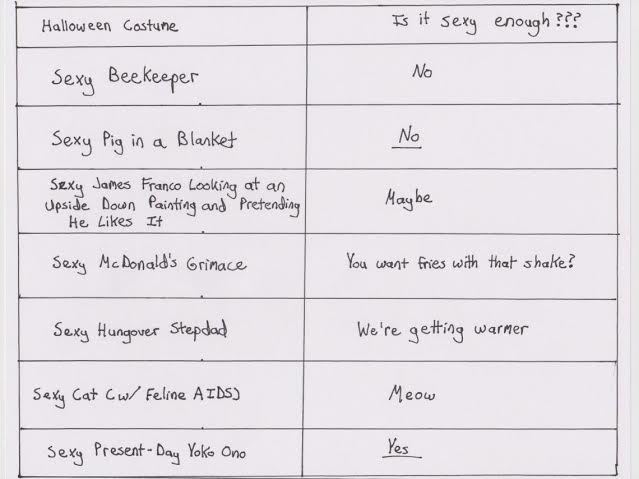 Halloween Costume
Is it sexy enough???
Sexy Beekeeper
No
Sexy Pig in a Blanket
No
Sexy James Franco Looking at an
Upside Down Painting and Pretending
He Likes It
Maybe
Sexy McDonald's Grimace
You want fries with that shake?
Sexy Hungover Stepdad
We're getting warmer
Sexy Cat (w/ Feline AIDS)
Meow
Sexy Present-Day Yoko Ono
Yes